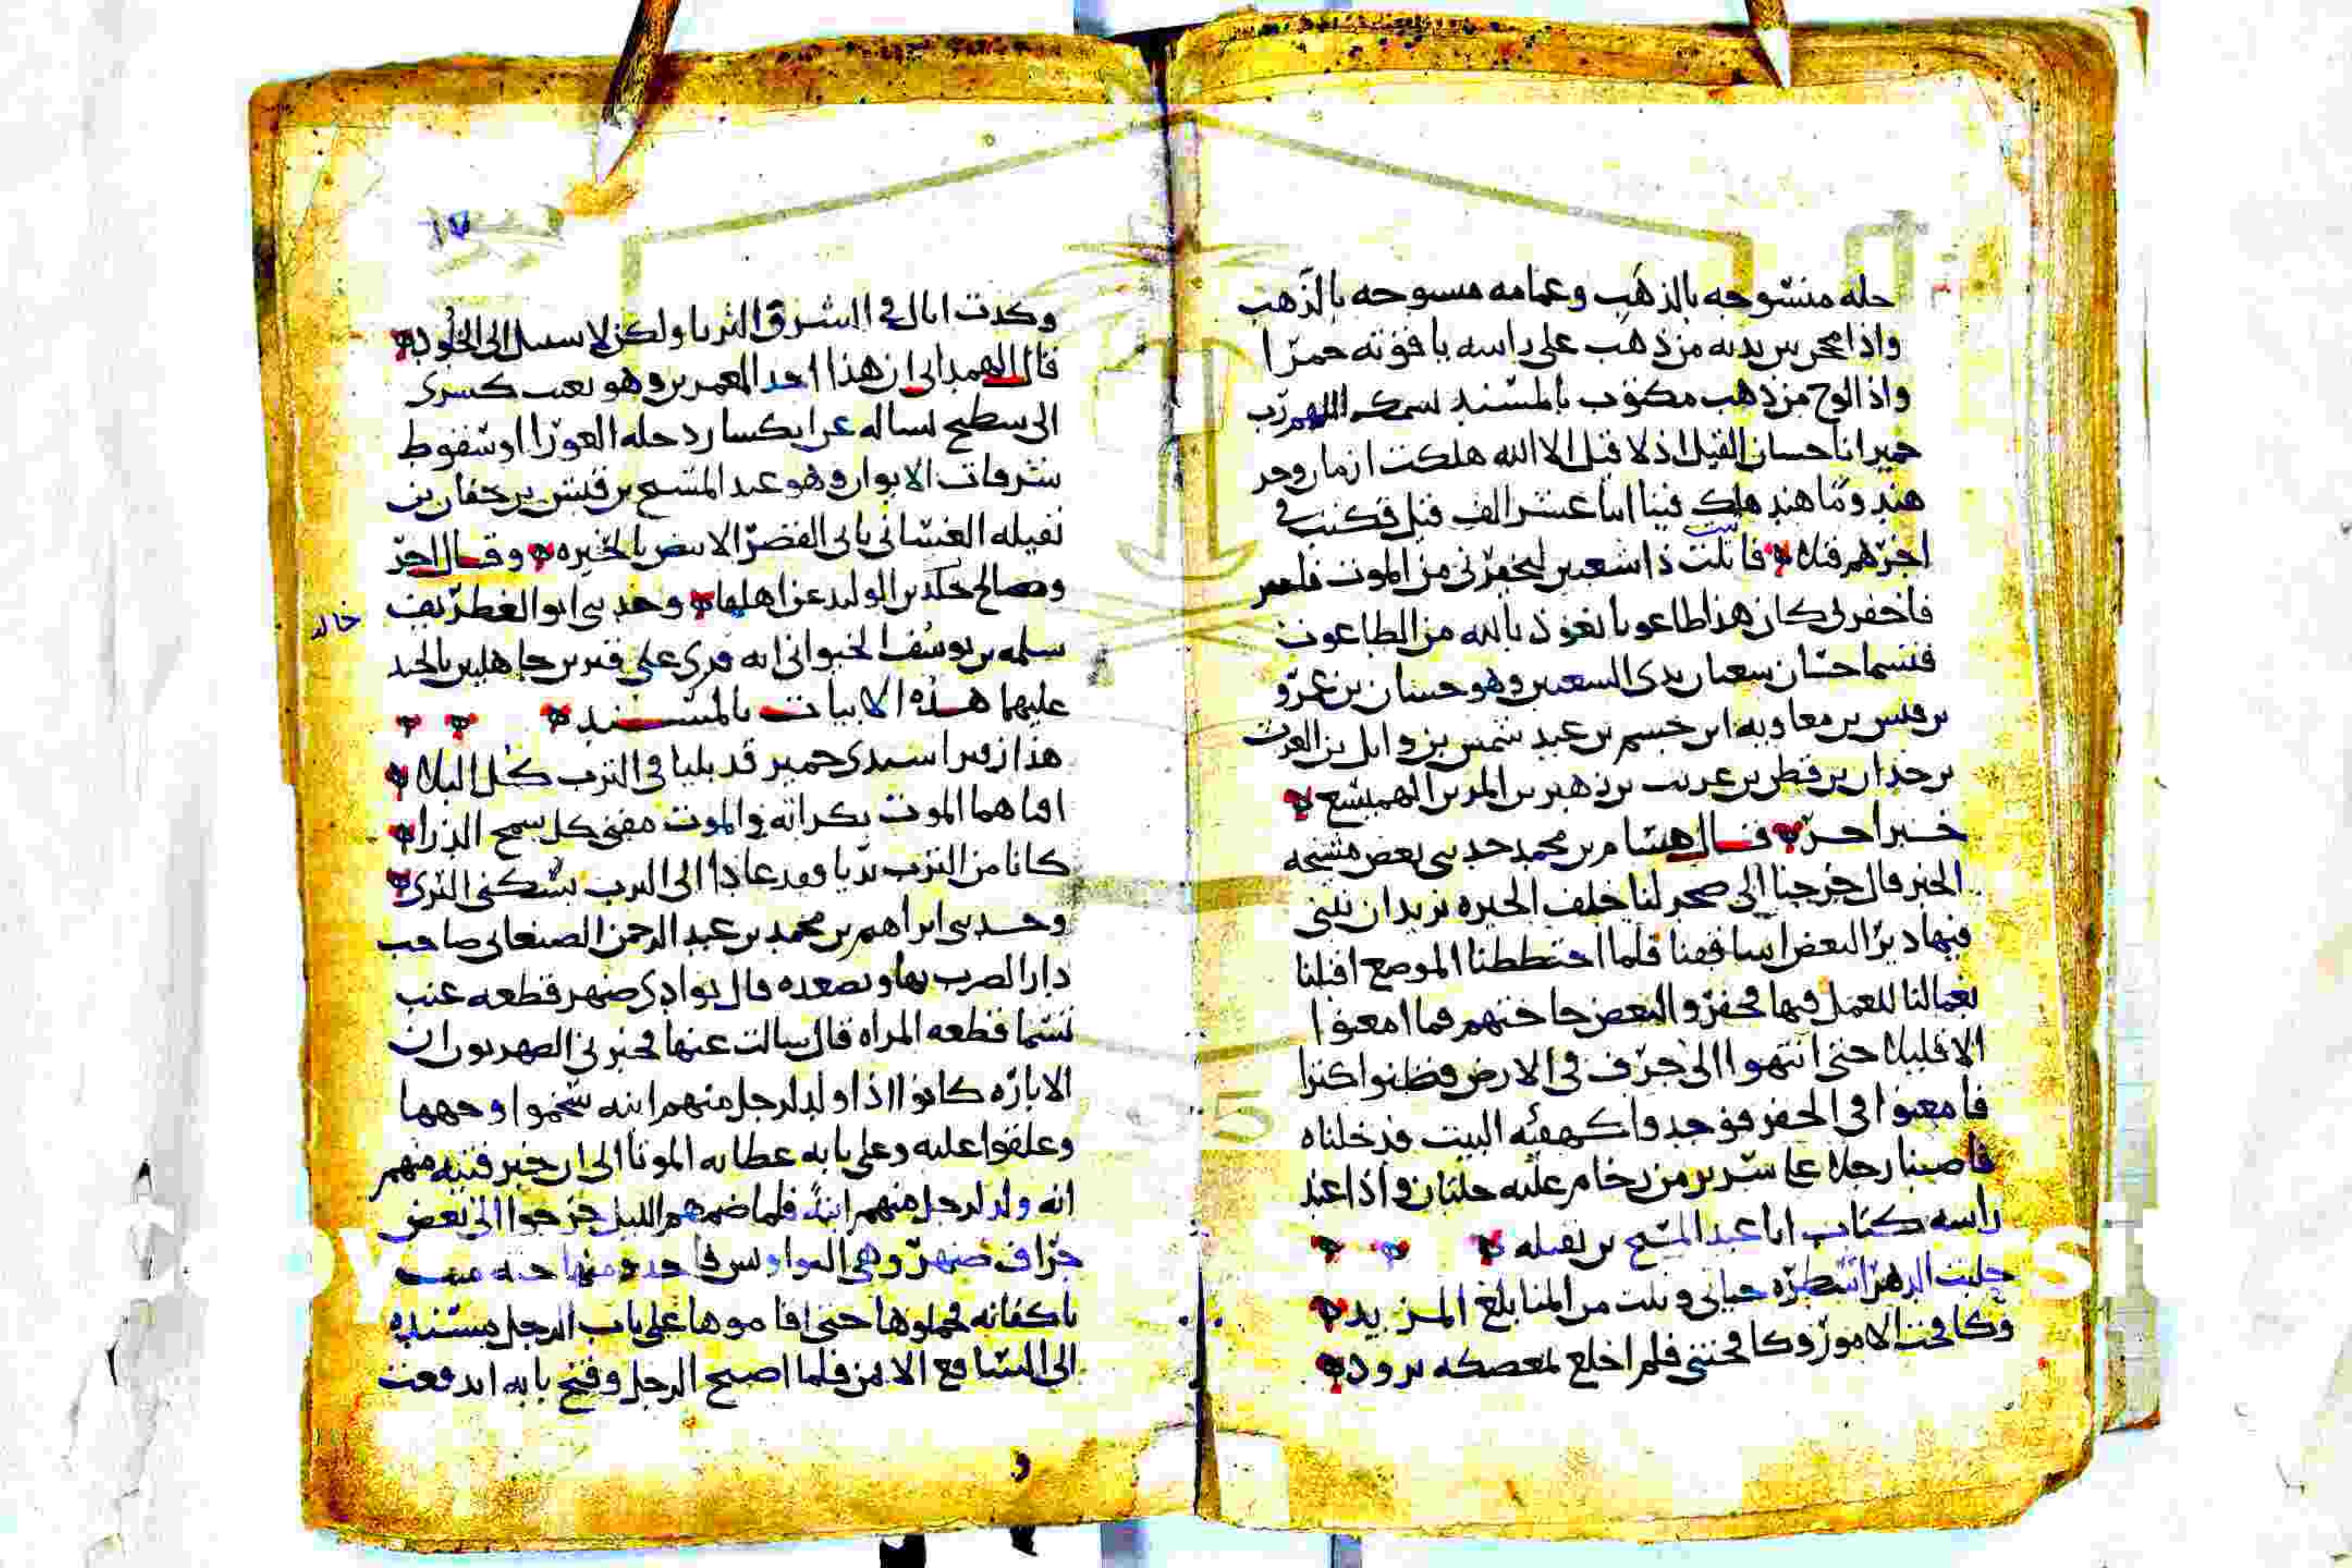 حله منسوجه بالذهب وعمامه مسوحه بالذهب
واذا محجن بين يديه من ذهب على راسه ياقوته حمرا
واذا لوح من ذهب مكتوب بالمسند بسمك اللهم رب
حمير انا حسان القيل اذ لا قيل الا الله هلكت ازمان وخر
هيد وما هيد هلك فيها اثنا عشر الف قيل فكنت في
اخرهم قيلا فاتيت ذا شعبين ليخفرني من الموت فلم
فاخفرني كان هذا طاعونا نعوذ بالله من الطاعون
فسما حسان شعبان بذي الشعبين وهو حسان بن عمرو
بن قيس بن معاويه ابن جشم بن عبد شمس بن وايل بن الغوث
بن حيدان بن قطن بن عريب بن زهير بن ايمن بن الهميسع
خبر اخر قال هشام بن محمد حدثني بعض مشيخه
الحيره قال خرجنا الى صحر لنا خلف الحيره نريد ان نبني
فيها ديرا لبعض اساقفتنا فلما اختططنا الموضع اقبلنا
بعمالنا للعمل فيها فحفروا لبعض حاجتهم فما امعنوا
الا قليلا حتى انتهوا الى جرف في الارض فظنوا كنزا
فامعنوا في الحفر فوجدوا كهيئه البيت فدخلناه
فاصبنا رجلا على سرير من رخام عليه حلتان واذا عند
راسه كتاب انا عبد المسيح بن نفيله
حلبت الدهر اشطره حياتي ونلت من المنا بلغ المزيد
وكافحت الامور وكافحتني فلم اخلع لمعضله برود
١٧
وكدت انال في الشرف الثريا ولكن لا سبيل الى الخلود
قال الهمداني ان هذا احد المعمرين وهو بعث كسرى
الى سطيح لساله عن ايكسار دجله العورا او سقوط
شرفات الايوان وهو عبد المسيح بن قيس بن حفان بن
نفيله الغساني باني القصر الابيض بالحيره وقال اخر
وصالح خلد بن الوليد عن اهلها وحدثني ابو الغطريف
خالد
سلمه بن يوسف الخيواني انه قري على قبرين جاهليين بالجند
عليهما هذه الابيات بالمسند
هذا ن قبرا سيدي حمير قد بليا في الترب كل البلا
افناهما الموت بكراته والموت مفني كل سمح الذرا
كانا من الترب بديا وقد عادا الى الترب بسكنى الثرى
وحدثني ابراهيم بن محمد بن عبد الرحمن الصنعاني صاحب
دار الضرب بها وبصعده قال بوادي ضهر قطعه عنب
تسما قطعه المراه قال سالت عنها فخبرني الضهريون ان
الابازه كانوا اذا ولد لرجل منهم ابنه سخموا وجهها
وعلقوا عليه وعلى بابه عظا به الموتا الى ان خبر فتيه منهم
انه ولد لرجل منهم ابنة فلما ضمهم الليل خرجوا الى بعض
جراف ضهر وهي النواويس فاخذو منها جثه ميت
باكفانه فحملوها حتى اقاموها على باب الرجل مستنده
الى السا فع الامن فلما اصبح الرجل وفتح بابه اندفعت